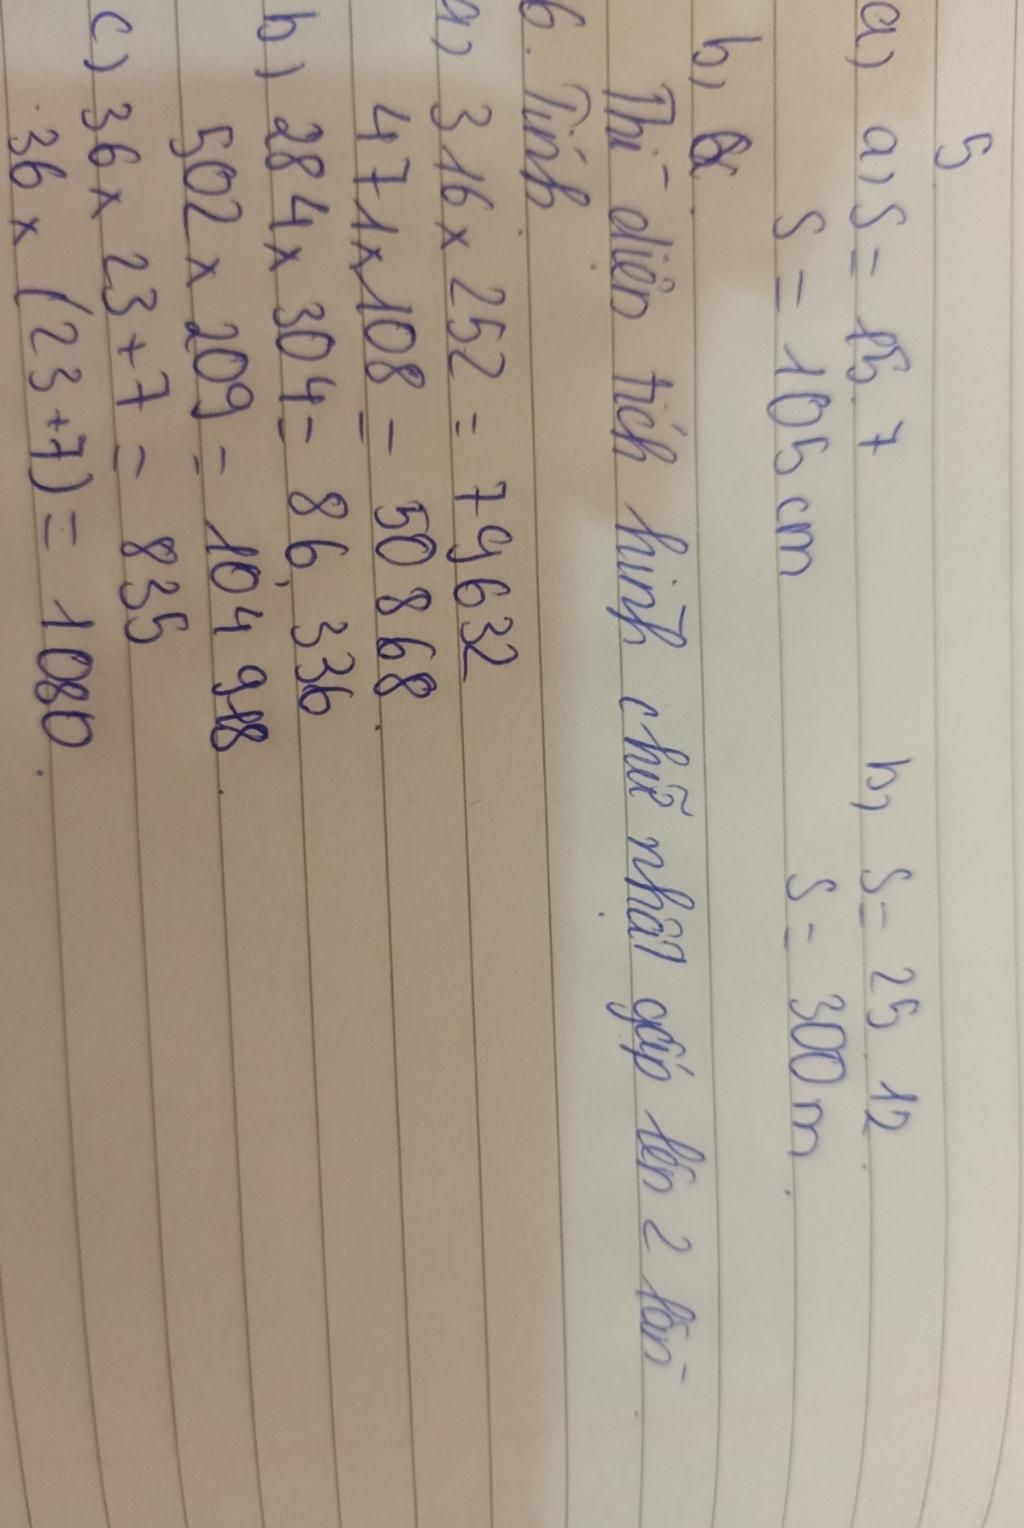 5
a) a) S = 15. 7 b, S = 25 12
S = 105 cm S = 300 m
b,
Thì diện tích hình chữ nhật gấp lên 2 lần
6. Tính
a) 316 x 252 = 79632
471 x 108 = 50 868
b) 284 x 304 = 86,336
502 x 209 = 104 918
c) 36 x 23 + 7 = 835
36 x (23 + 7) = 1080